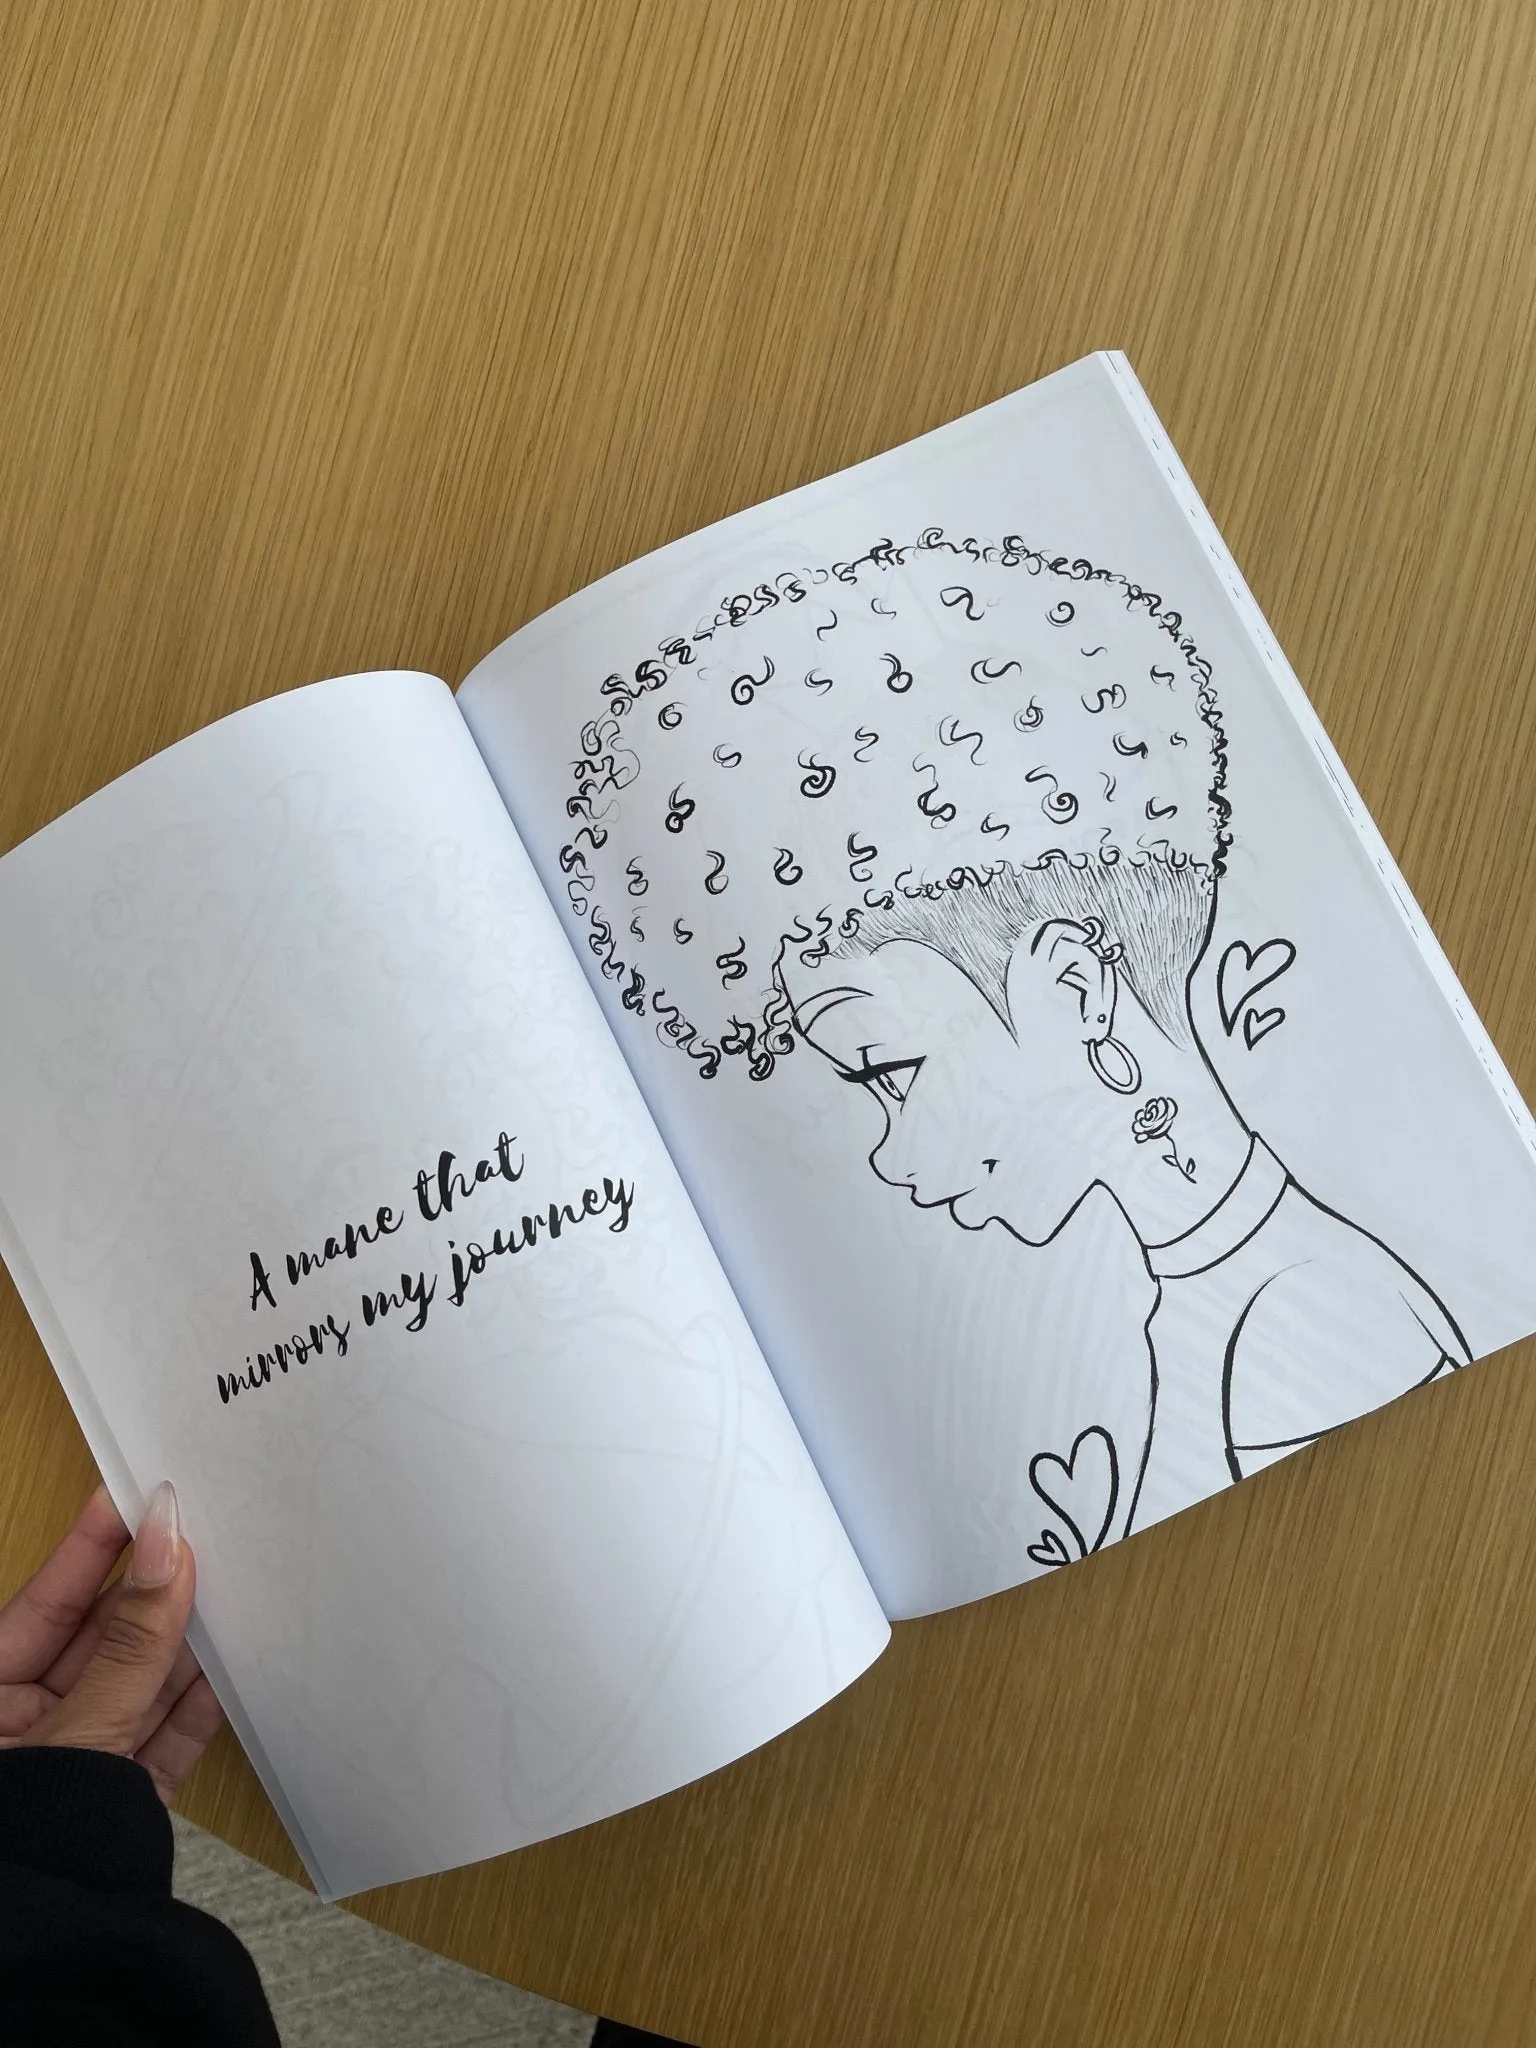 A mane that
mirrors my journey